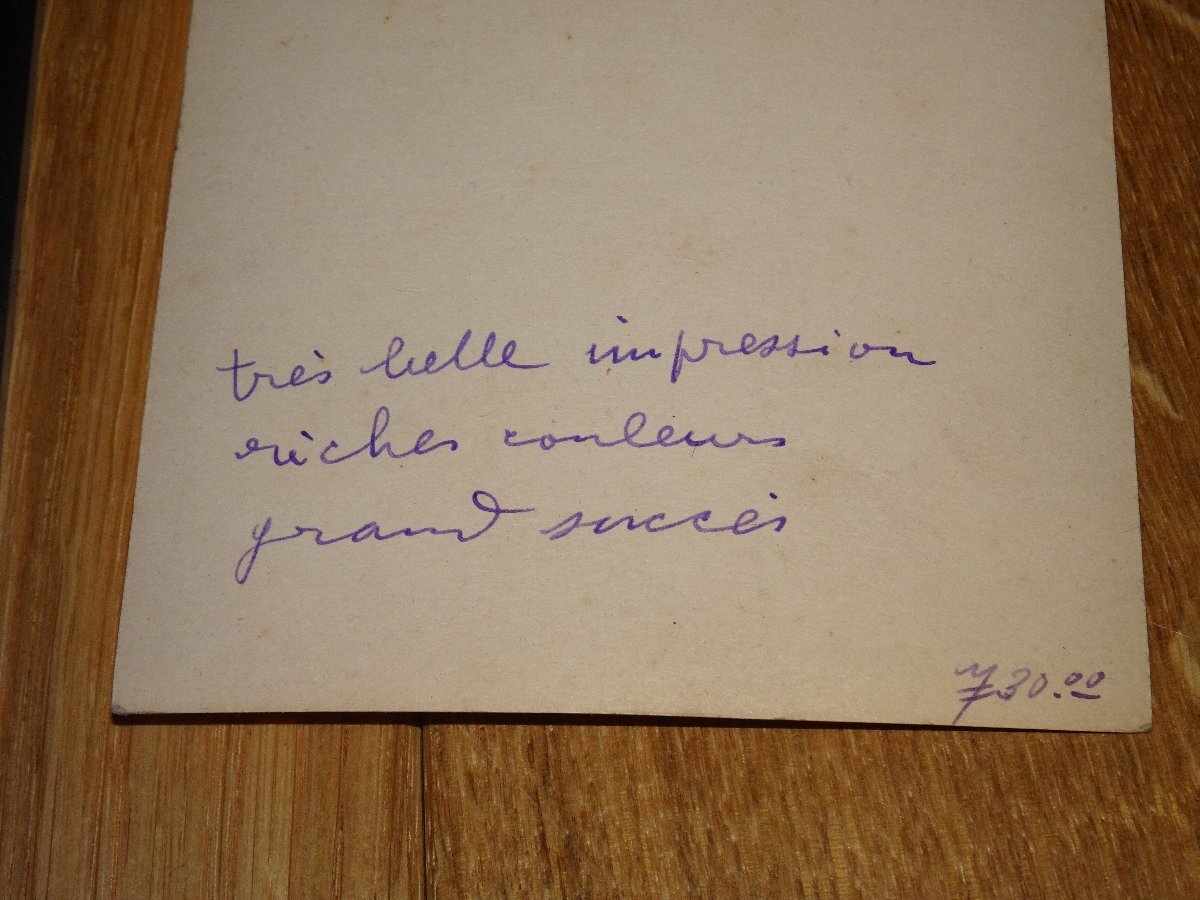 très belle impression
riches couleurs
grand succès
730.00